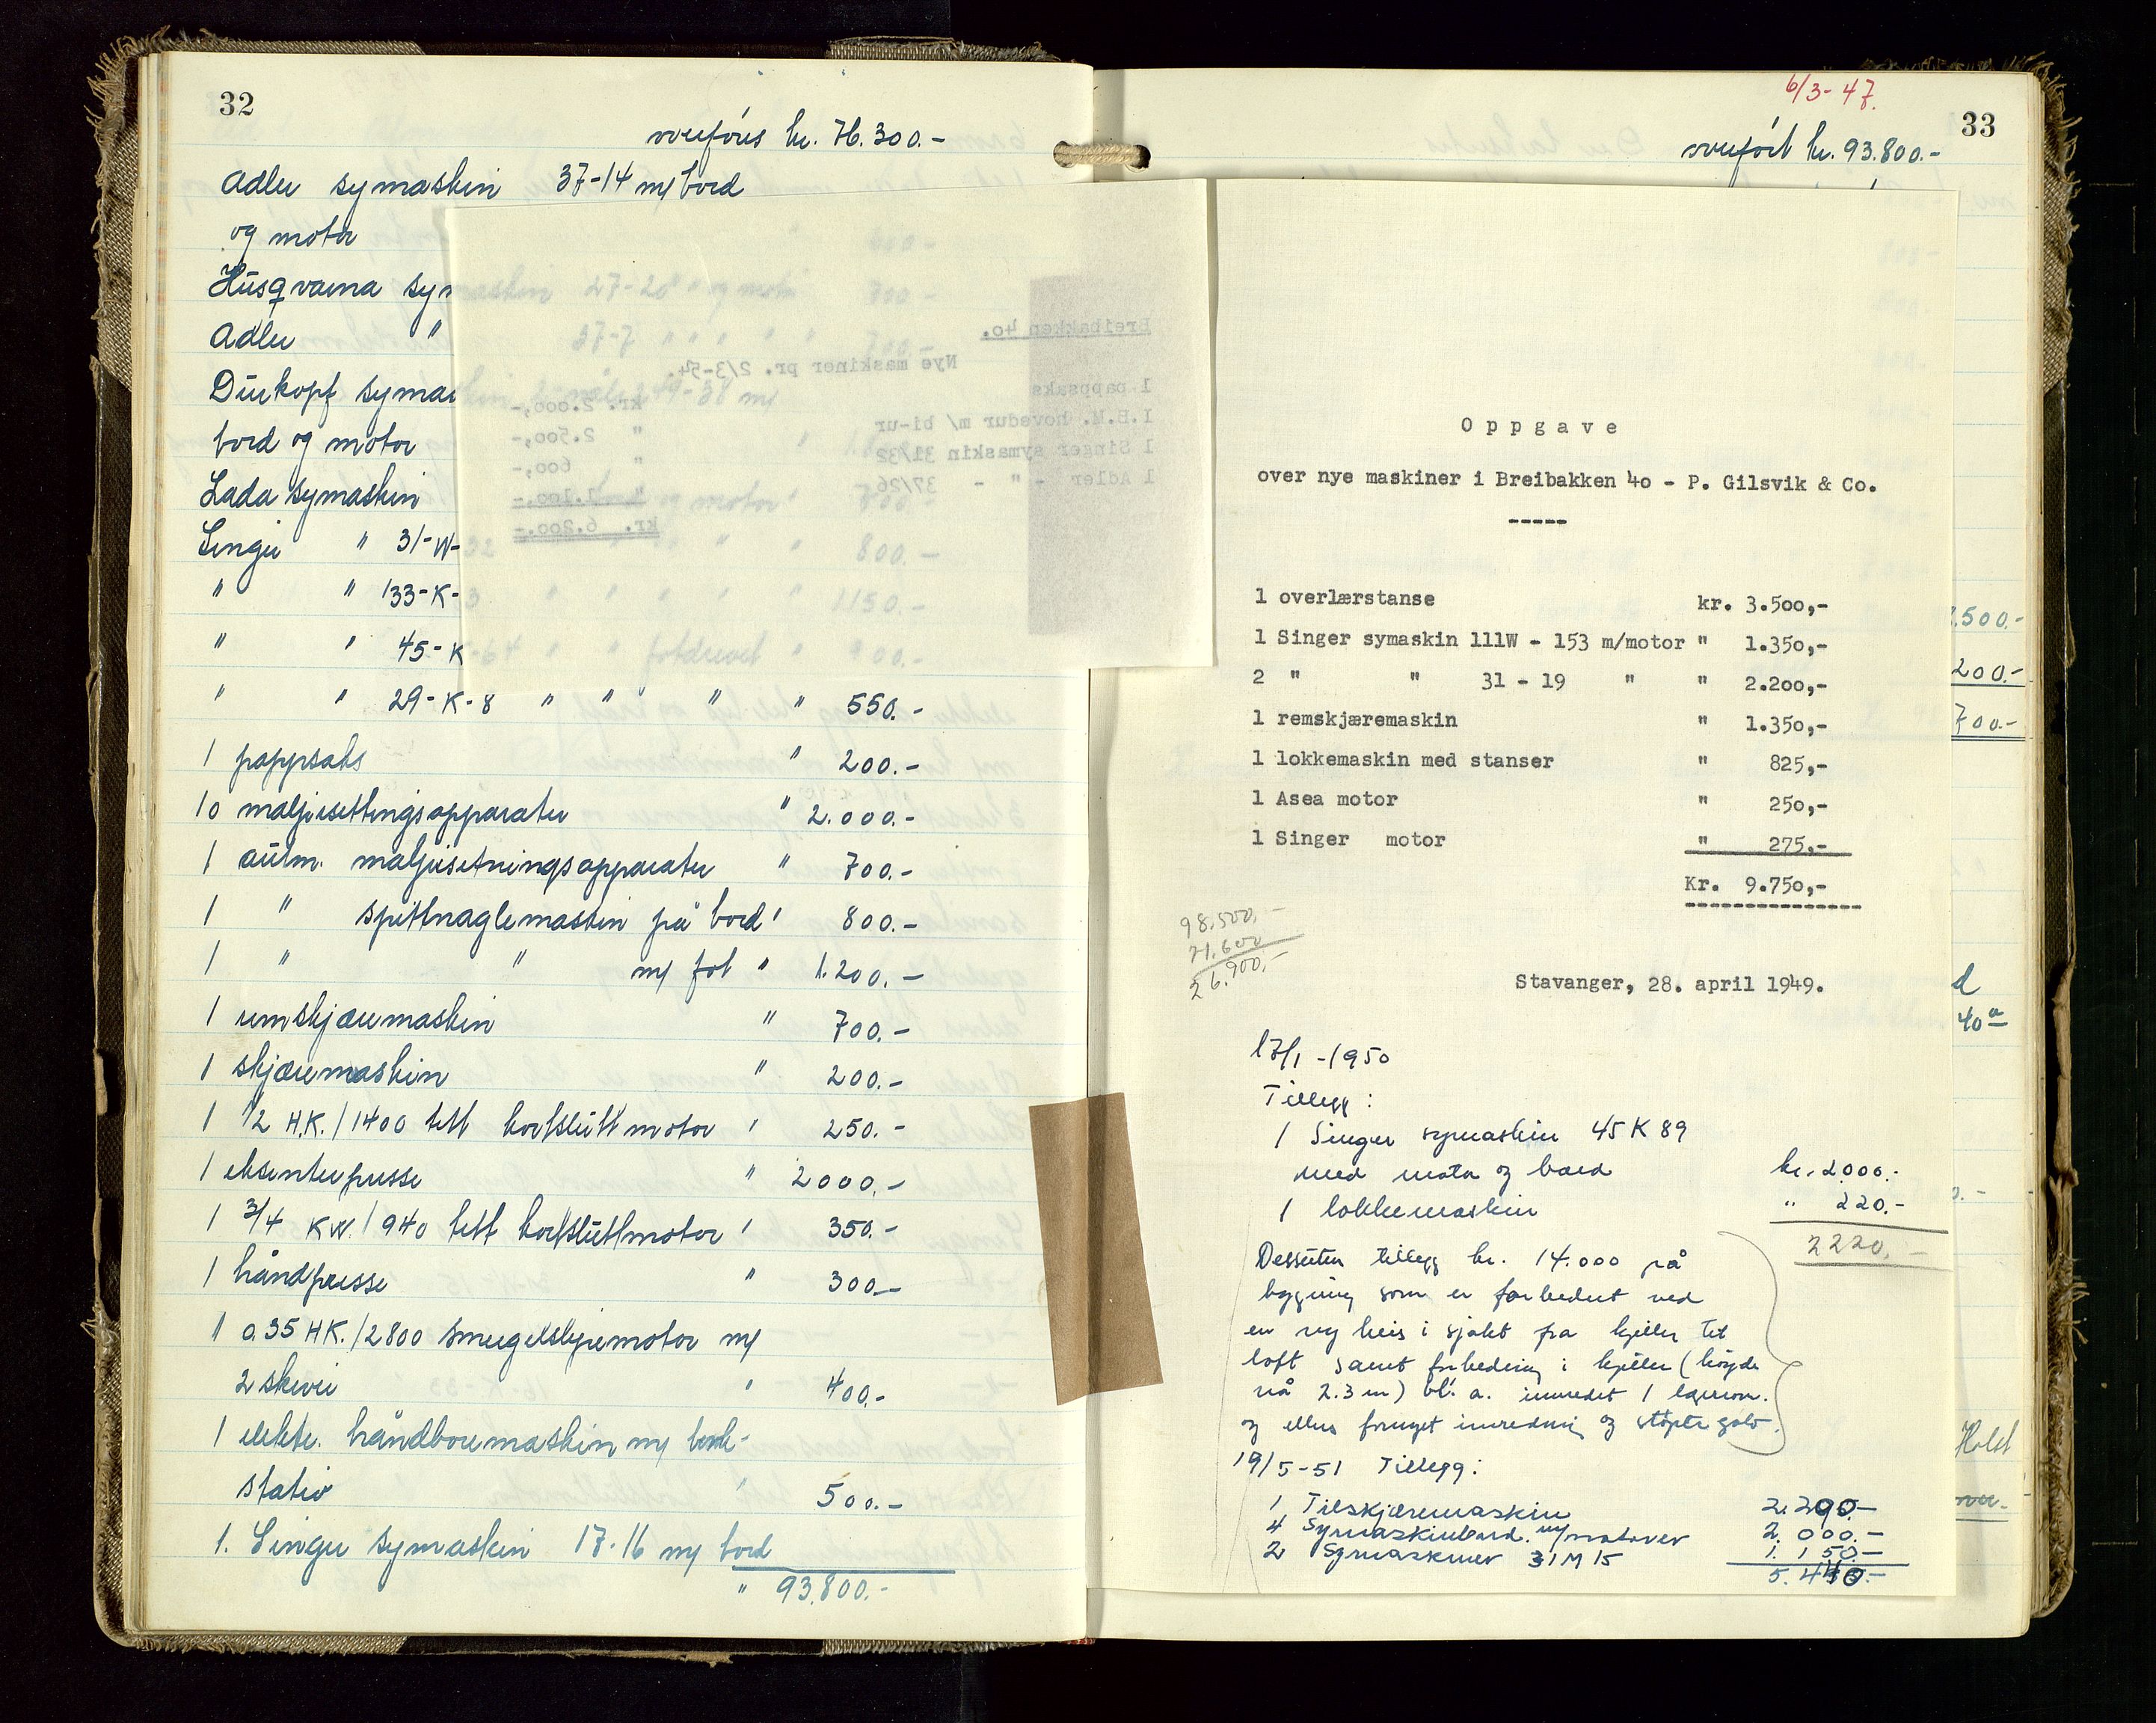 32
overføres kr. 76.300.-
Adler symaskin 37-14 m/ bord
og motor
Husqvarna sym
Adler "
Dürkopf symas
bord og motor
Lada symaskin
Singer " 31-W-32 " " " 800.-
" " 133-K-3 " " " " " 1150.-
" " 45-K-64 " " fotdrevet " 900.-
" " 29-K-8 " " " " 550.-
1 pappsaks " 200.-
10 maljesettingsapparater " 2.000.-
1 autm. maljesetningsapparater " 700.-
1 " splittnaglemaskin på bord " 800.-
1 " " m/ fot " 1.200.-
1 remskjæremaskin " 700.-
1 skjæremaskin " 200.-
1 1/2 H.K./1400 tett kortslutt motor " 250.-
1 eksenterpresse " 2000.-
1 3/4 KW./940 tett kortsluttmotor " 350.-
1 håndpresse " 300.-
1 0.35 HK./2800 smergelslipemotor m/
2 skiver " 400.-
1 elektr. håndboremaskin m/ benk-
stativ " 500.-
1. Singer symaskin 17-16 m/ bord
" 93.800.-
Breibakken 40.
Nye maskiner pr. 2/3-54.
1 pappsaks kr. 2.000,-
1 E.M. hovedur m/ bi-ur " 2.500,-
1 Singer symaskin 31/32 " 600,-
1 Adler - " - 37/26 " 1.100.-
kr. 6.200.-
6/3-47.
33
overført kr. 93.800.-
Oppgave
over nye maskiner i Breibakken 40 - P. Gilsvik & Co.
-----
1 overlærstanse kr. 3.500,-
1 Singer symaskin 111W - 153 m/motor " 1.350,-
2 " " 31 - 19 " " 2.200,-
1 remskjæremaskin " 1.350,-
1 lokkemaskin med stanser " 825,-
1 Asea motor " 250,-
1 Singer motor " 275.-
Kr. 9.750,-
98.500.-
71.600
26.900.-
Stavanger, 28. april 1949.
17/1 -1950
Tillegg :
1 Singer symaskin 45 K 89
med motor og bord kr. 2.000.-
1 lokkemaskin " 220.-
2220.-
Dessuten tillegg kr. 14.000 på
bygning som er forbedret ved
en ny heis i sjakt fra kjeller til
loft samt forbedring i kjeller (høyde
nå 2.3 m) bl. a. innredet 1 lagerrom.
og ellers fornyet innredning og støpte golv.
19/5-51 Tillegg:
1 Tilskjæremaskin 2.290.-
4 Symaskinbord m/motorer 2.000.-
2 Symaskiner 31 M 15 1.150.-
5.440.-
.500.-
200.-
700.-
d
40a
Holst